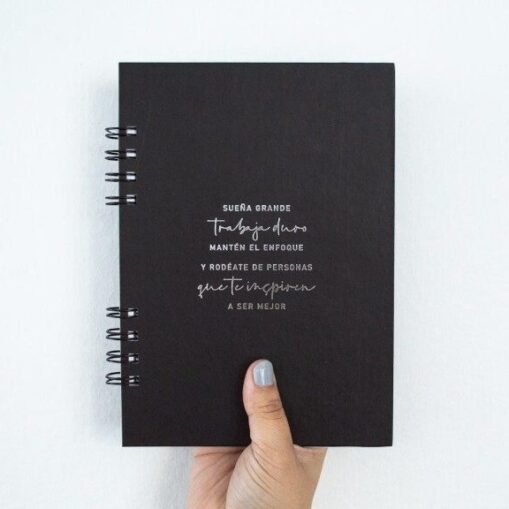 SUEÑA GRANDE
trabaja duro
MANTÉN EL ENFOQUE
Y RODÉATE DE PERSONAS
que te inspiren
A SER MEJOR